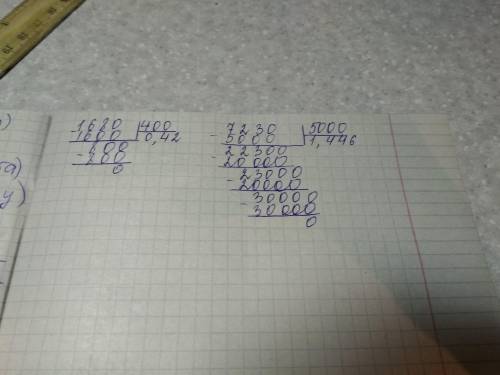 1680 400
- 1600 0,42
800
- 800
0
7230 5000
- 5000 1,446
22300
- 20000
23000
- 20000
30000
- 30000
0
а)
у)